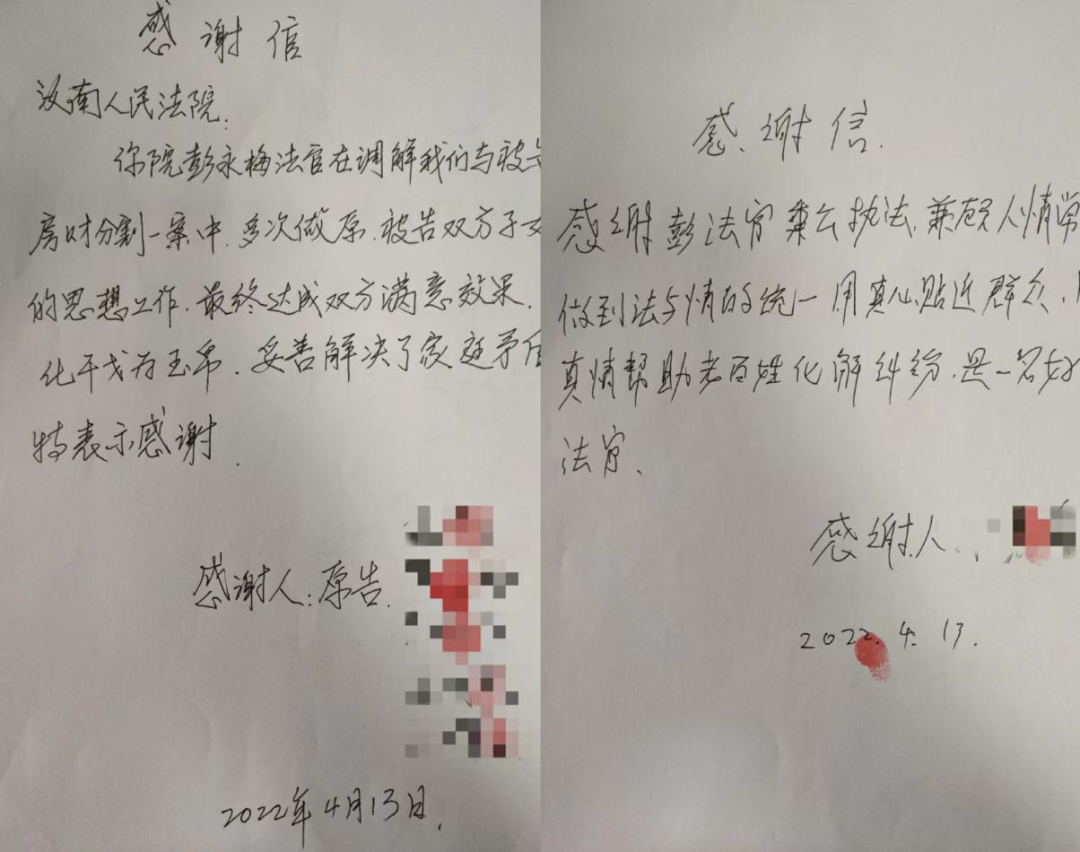 感谢信
汝南人民法院.
你院彭永梅法官在调解我们与被
房财分割一案中.多次做原.被告双方子女
的思想工作.最终达成双方满意效果.
化干戈为玉帛.妥善解决了家庭矛盾
特表示感谢.
感谢人:原告.
2022年4月13日.
感谢信.
感谢彭法官秉公执法.兼顾人情常
做到法与情的统一用真心贴近群众.
真情帮助老百姓化解纠纷.是一名好
法官.
感谢人.
2022.4.13.